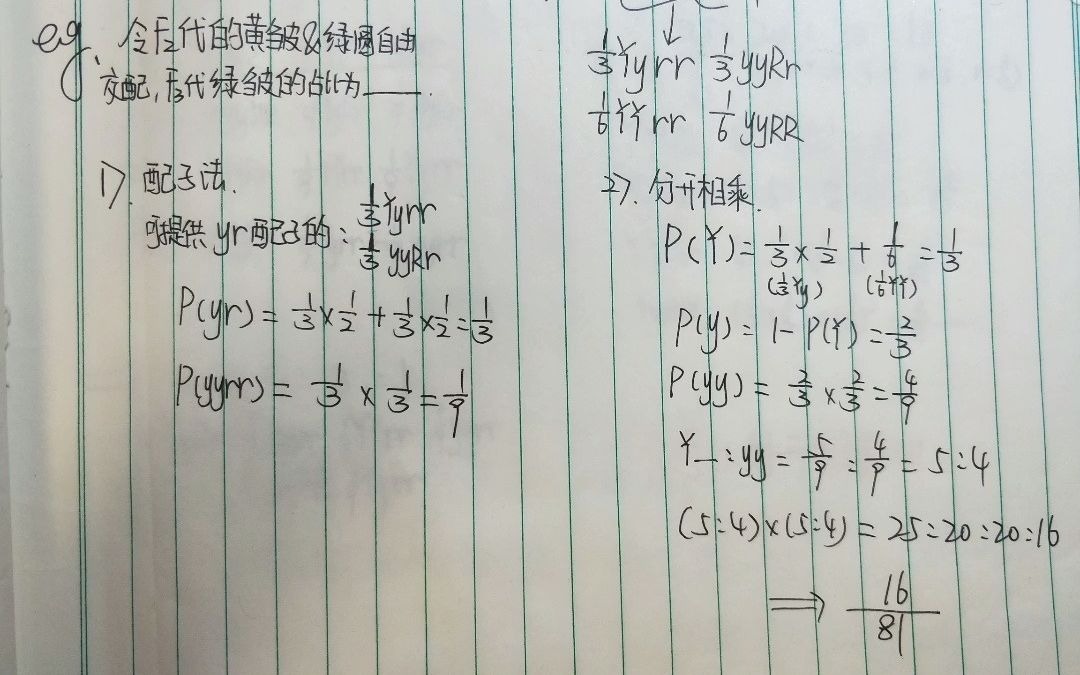 eg. 令F₂代的黄皱&绿圆自由
交配,F₃代绿皱的占比为____.
1). 配子法.
可提供 yr 配子的: 1/3 Yyrr
1/3 yyRr
P(yr) = 1/3 × 1/2 + 1/3 × 1/2 = 1/3
P(yyrr) = 1/3 × 1/3 = 1/9
↓
1/3 Yyrr 1/3 yyRr
1/6 YYrr 1/6 yyRR
2). 分开相乘.
P(Y) = 1/3 × 1/2 + 1/6 = 1/3
(1/3 Yy) (1/6 YY)
P(y) = 1 - P(Y) = 2/3
P(yy) = 2/3 × 2/3 = 4/9
Y_ : yy = 5/9 : 4/9 = 5:4
(5:4)×(5:4) = 25:20:20:16
⟹ 16/81